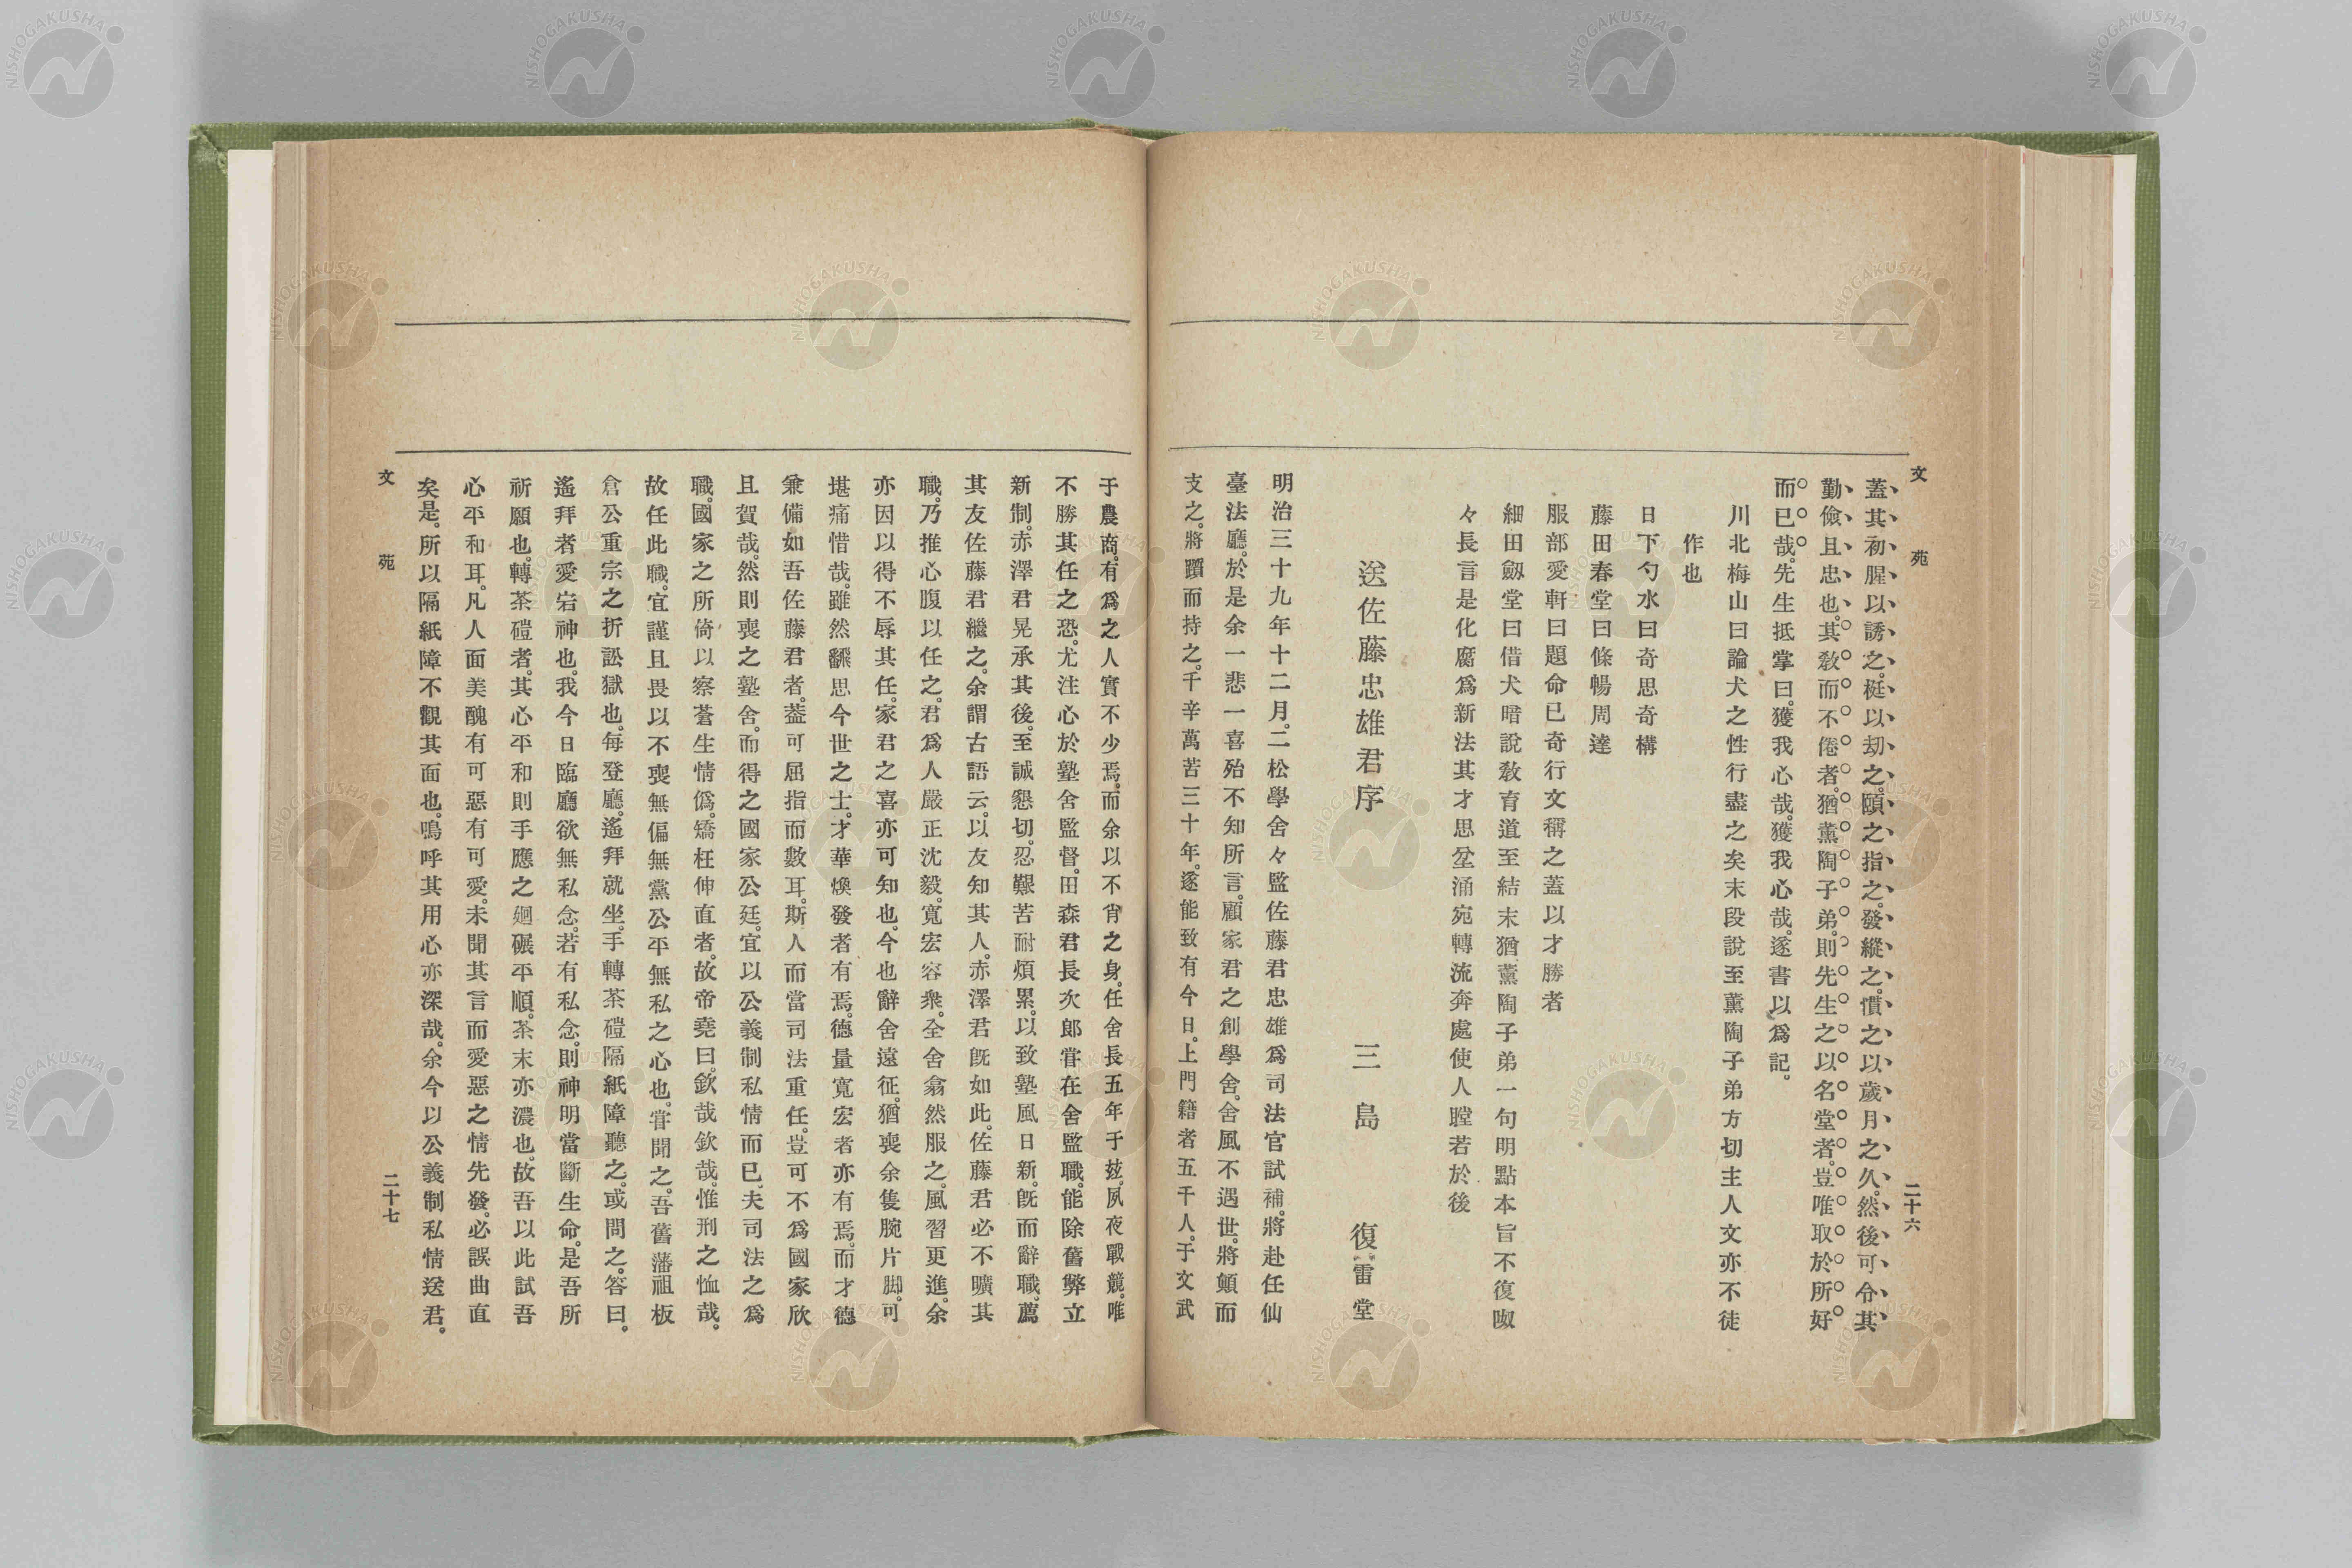 文苑
二十六
蓋其初腥以誘之。梃以刧之。頤之指之。發縱之。慣之以歲月之久。然後可令其
勤儉且忠也。其敎而不倦者。猶薰陶子弟。則先生之以名堂者。豈唯取於所好
而已哉。先生抵掌曰。獲我心哉。獲我心哉。遂書以爲記。
川北梅山曰論犬之性行盡之矣末段說至薰陶子弟方切主人文亦不徒
作也
日下勺水曰奇思奇構
藤田春堂曰條暢周達
服部愛軒曰題命已奇行文稱之蓋以才勝者
細田劒堂曰借犬暗說敎育道至結末猶薰陶子弟一句明點本旨不復呶
々長言是化腐爲新法其才思坌涌宛轉流奔處使人瞠若於後
送佐藤忠雄君序
三島復雷堂
明治三十九年十二月。二松學舍々監佐藤君忠雄爲司法官試補。將赴任仙
臺法廳。於是余一悲一喜殆不知所言。顧家君之創學舍。舍風不遇世。將顚而
支之。將躓而持之。千辛萬苦三十年。遂能致有今日。上門籍者五千人。于文武
于農商。有爲之人實不少焉。而余以不肖之身。任舍長五年于玆。夙夜戰兢。唯
不勝其任之恐。尤注心於塾舍監督。田森君長次郎甞在舍監職。能除舊弊立
新制。赤澤君晃承其後。至誠懇切。忍艱苦耐煩累。以致塾風日新。旣而辭職。薦
其友佐藤君繼之。余謂古語云。以友知其人。赤澤君旣如此。佐藤君必不曠其
職。乃推心腹以任之。君爲人嚴正沈毅。寬宏容衆。全舍翕然服之。風習更進。余
亦因以得不辱其任。家君之喜亦可知也。今也辭舍遠征。猶喪余隻腕片脚。可
堪痛惜哉。雖然飜思今世之士。才華煥發者有焉。德量寬宏者亦有焉。而才德
兼備如吾佐藤君者。蓋可屈指而數耳。斯人而當司法重任。豈可不爲國家欣
且賀哉。然則喪之塾舍。而得之國家公廷。宜以公義制私情而已。夫司法之爲
職。國家之所倚以察蒼生情僞。矯枉伸直者。故帝堯曰。欽哉欽哉。惟刑之恤哉。
故任此職。宜謹且畏以不喪無偏無黨公平無私之心也。甞聞之。吾舊藩祖板
倉公重宗之折訟獄也。每登廳。遙拜就坐。手轉茶磑隔紙障聽之。或問之。答曰。
遙拜者愛宕神也。我今日臨廳欲無私念。若有私念。則神明當斷生命。是吾所
祈願也。轉茶磑者。其心平和則手應之廻碾平順。茶末亦濃也。故吾以此試吾
心平和耳。凡人面美醜有可惡有可愛。未聞其言而愛惡之情先發。必誤曲直
矣是。所以隔紙障不觀其面也。嗚呼其用心亦深哉。余今以公義制私情送君。
文苑
二十七